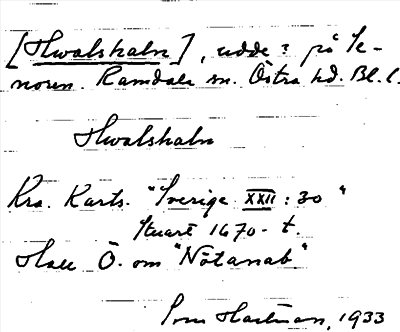 [Hwalshaln], udde? på Se-
noren. Ramdala sn. Östra hd. Bl. l.
Hwalshaln
Kra. Karts. "Sverige XXII:30"
Stuart 1670-t.
Hall Ö. om "Nötanab"
Hartman, 1933